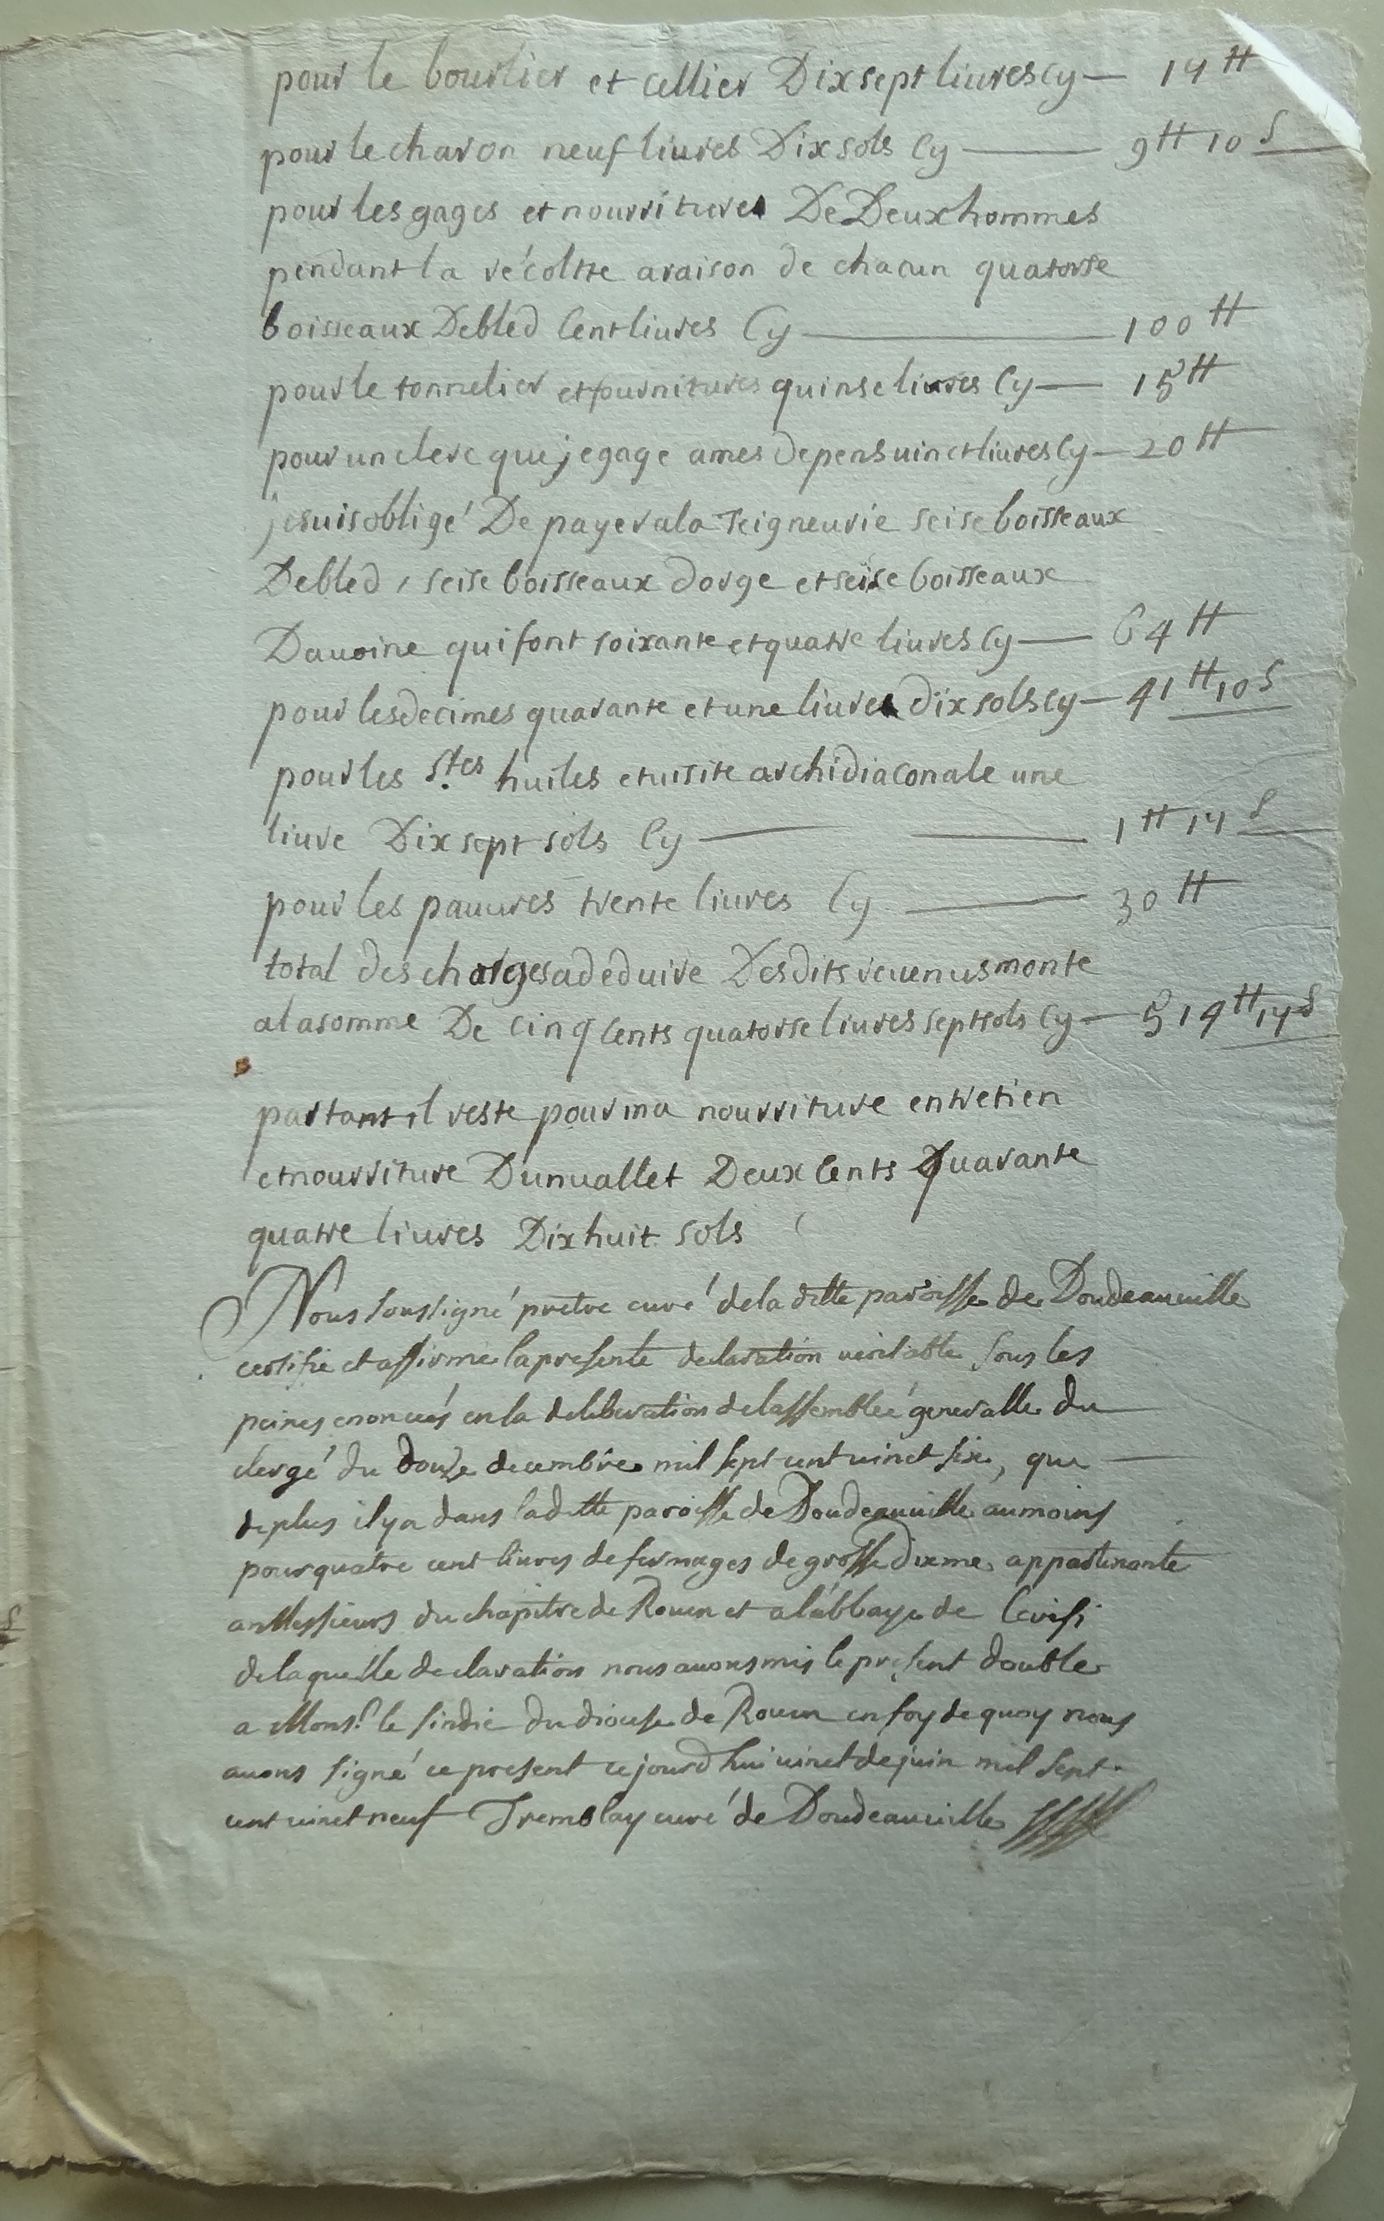 pour le bourlier et cellier Dix sept liures Cy — 17 ₶
pour le charon neuf liures Dix sols Cy — 9 ₶ 10 s
pour les gages et nourritures De Deux hommes
pendant la récoltte a raison de chacun quatorse
boisseaux De bled Cent liures Cy — 100 ₶
pour le tonnelier et fournitures quinse liures Cy — 15 ₶
pour un clerc que je gage a mes depens uinct liures Cy — 20 ₶
je suis obligé De payer a la seigneurie seise boisseaux
De bled, seise boisseaux dorge et seise boisseaux
Dauoine qui font soixante et quatre liures Cy — 64 ₶
pour les decimes quarante et une liures dix sols Cy — 41 ₶ 10 s
pour les Stes huiles et uisite archidiaconale une
liure Dix sept sols Cy — 1 ₶ 17 s
pour les pauures trente liures Cy — 30 ₶
total des charges a déduire Desdits reuenus monte
a la somme De cinq Cents quatorse liures sept sols Cy — 514 ₶ 17 s
partant il reste pour ma nourriture entretien
et nourriture Dun uallet Deux Cents Quarante
quatre liures Dix huit sols
Nous soussigné prêtre curé de la ditte paroisse de Doudeauuille
certifie et affirme la presente declaration ueritable sous les
peines enoncées en la deliberation de lassemblée generalle du
clergé du douze decembre mil sept cent uinct six, que —
de plus il y a dans la ditte paroisse de Doudeauuille au moins
pour quatre cent liures de fermages de grosse dixme appartenante
a Messieurs du chapitre de Rouen et a l'abbaye de Cerisi
de laquelle declaration nous auons mis le present double
a Monsr le sindic du diocese de Rouen en foy de quoy nous
auons signé ce present ce jourd'hui uinct de juin mil sept
cent uinct neuf Tremblay curé de Doudeauuille